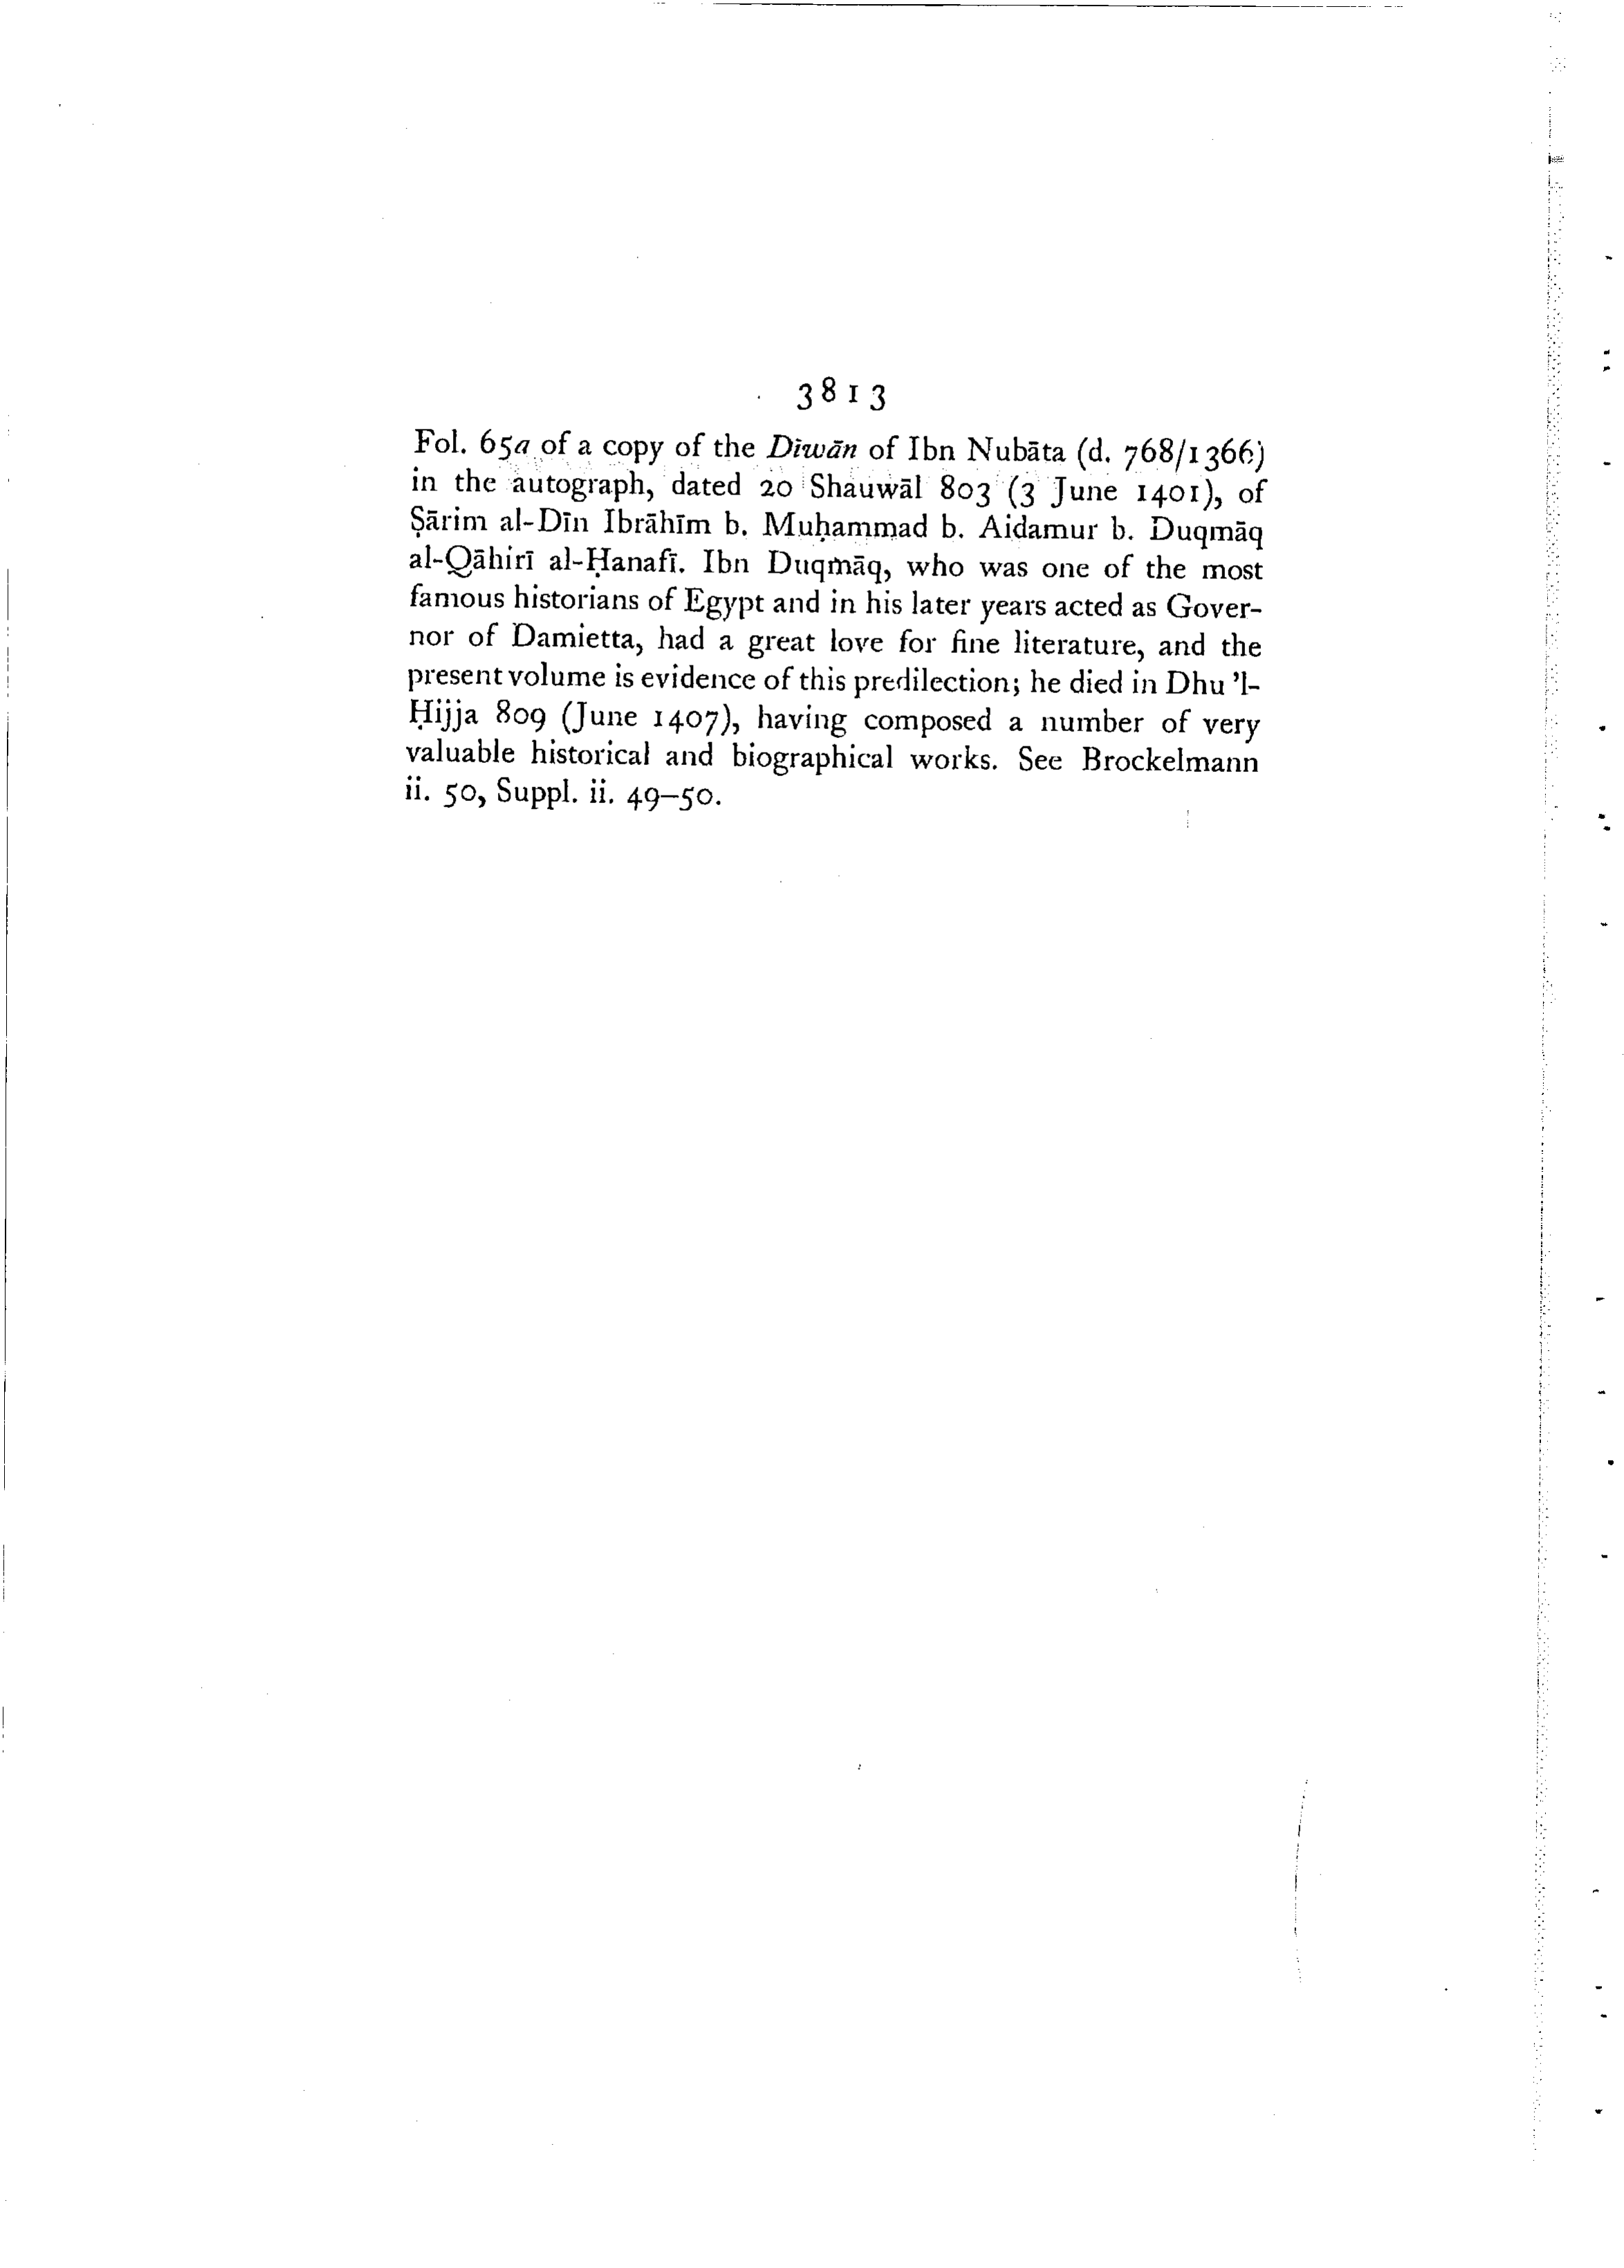 3813
Fol. 65a of a copy of the Dīwān of Ibn Nubāta (d. 768/1366)
in the autograph, dated 20 Shauwāl 803 (3 June 1401), of
Ṣārim al-Dīn Ibrāhīm b. Muḥammad b. Aidamur b. Duqmāq
al-Qāhirī al-Ḥanafī. Ibn Duqmāq, who was one of the most
famous historians of Egypt and in his later years acted as Gover-
nor of Damietta, had a great love for fine literature, and the
present volume is evidence of this predilection; he died in Dhu ’l-
Ḥijja 809 (June 1407), having composed a number of very
valuable historical and biographical works. See Brockelmann
ii. 50, Suppl. ii. 49–50.